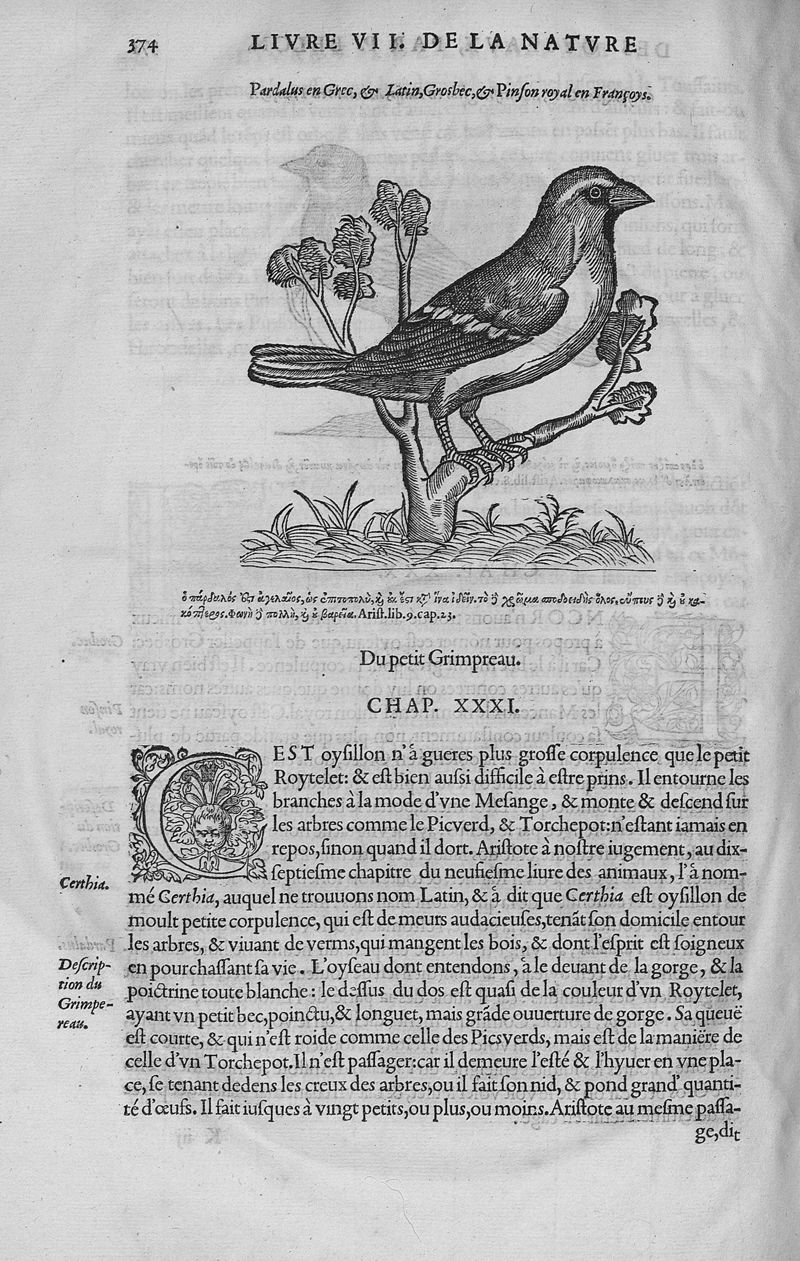 374 LIVRE VII. DE LA NATVRE
Pardalus en Grec, & Latin, Grosbec, & Pinſon royal en Françoys.
Ariſt. lib. 9. cap. 23.
Du petit Grimpreau.
CHAP. XXXI.
CEST oyſillon n'à gueres plus groſſe corpulence que le petit
Roytelet: & eſt bien auſsi difficile à eſtre prins. Il entourne les
branches à la mode d'vne Meſange, & monte & deſcend ſur
les arbres comme le Picverd, & Torchepot: n'eſtant iamais en
repos, ſinon quand il dort. Ariſtote à noſtre iugement, au dix-
ſeptieſme chapitre du neufieſme liure des animaux, l'à nom-
Certhia.
mé Certhia, auquel ne trouuons nom Latin, & à dit que Certhia eſt oyſillon de
moult petite corpulence, qui eſt de meurs audacieuſes, tenāt ſon domicile entour
les arbres, & viuant de verms, qui mangent les bois, & dont l'eſprit eſt ſoigneux
Deſcrip-
tion du
Grimpe-
reau.
en pourchaſſant ſa vie. L'oyſeau dont entendons, à le deuant de la gorge, & la
poictrine toute blanche: le deſſus du dos eſt quaſi de la couleur d'vn Roytelet,
ayant vn petit bec, poinctu, & longuet, mais grāde ouuerture de gorge. Sa queuë
eſt courte, & qui n'eſt roide comme celle des Picsverds, mais eſt de la maniëre de
celle d'vn Torchepot. Il n'eſt paſſager: car il demeure l'eſté & l'hyuer en vne pla-
ce, ſe tenant dedens les creux des arbres, ou il fait ſon nid, & pond grand' quanti-
té d'œufs. Il fait iuſques à vingt petits, ou plus, ou moins. Ariſtote au meſme paſſa-
ge, dit